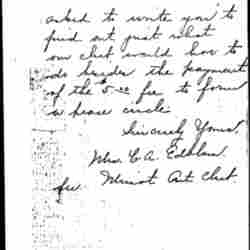 asked to write you to
find out just what
our club would have to
do besides the payment
of the 5.00 fee to form
a peace circle.
Sincerely Yours,
Mrs. C. A.
for Minot Art Club